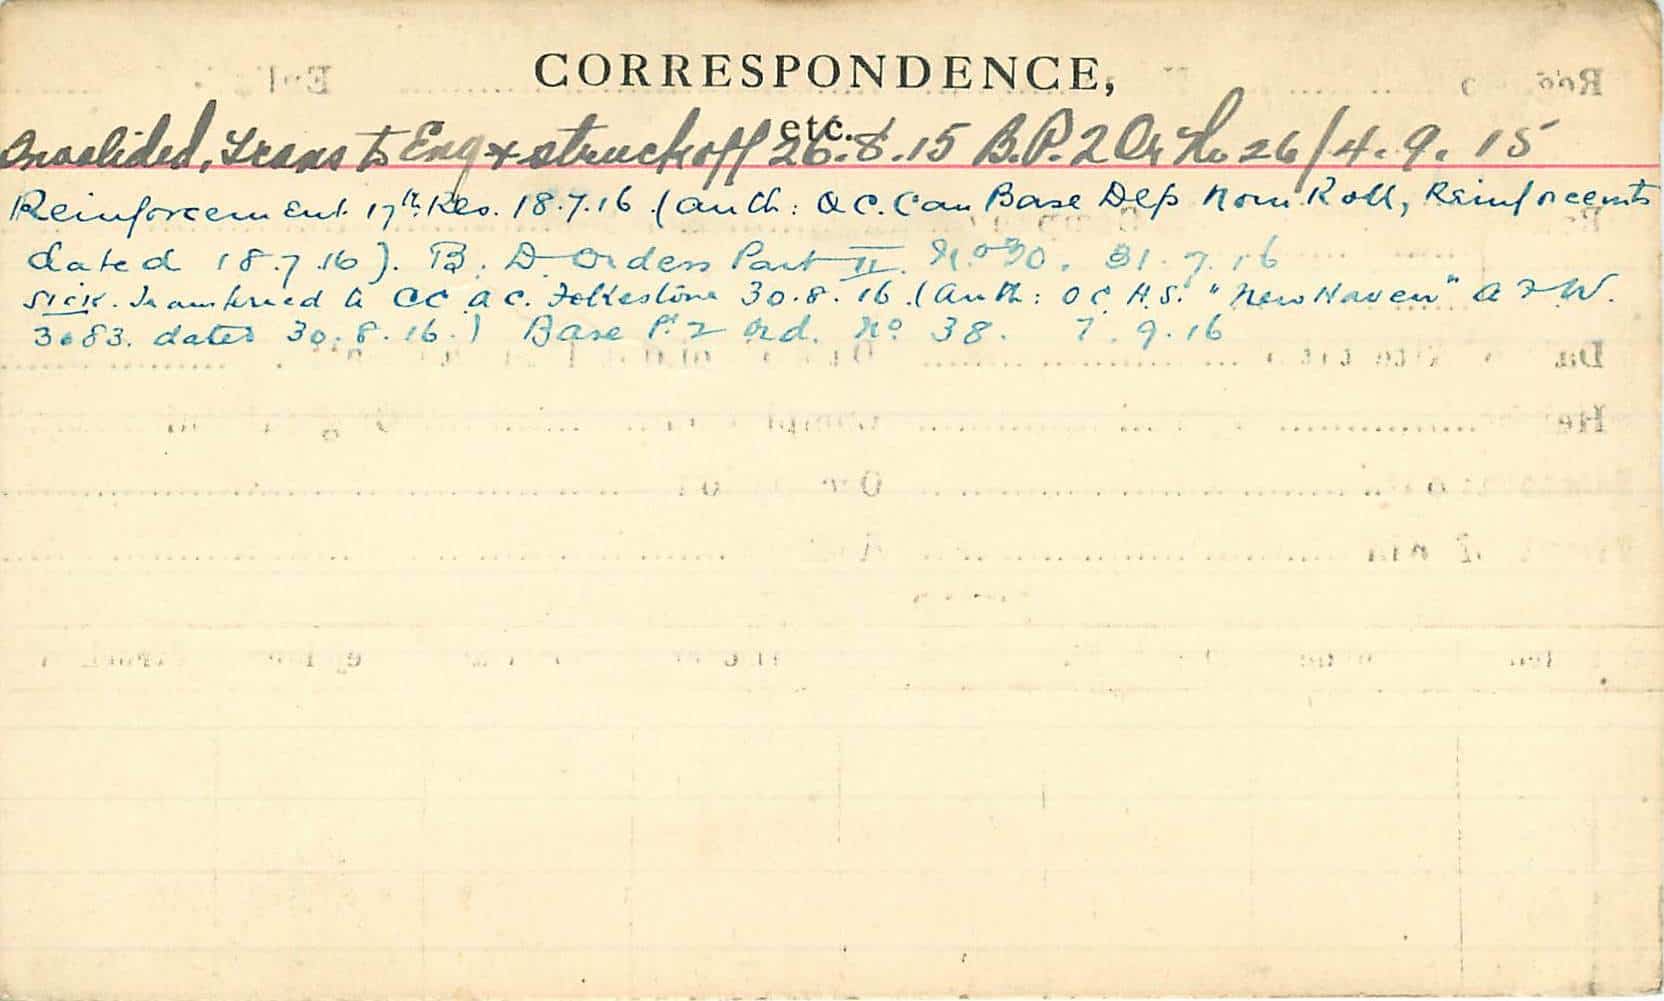 CORRESPONDENCE,
etc.
Invalided, trans to Eng + struck off 26.8.15 B.P.2 Or No 26/4.9.15
Reinforcement 17th Res. 18.7.16 (auth: O.C. Can Base Dep Nom Roll, Reinforcemts
dated 18.7.16). B. D. Orders Part II. No 30. 31.7.16
Sick. Transferred to CC a c. Folkestone 30.8.16 (auth: O C H.S. "New Haven" A F W.
3083. dated 30.8.16.) Base Pt 2 Ord. No 38. 7.9.16